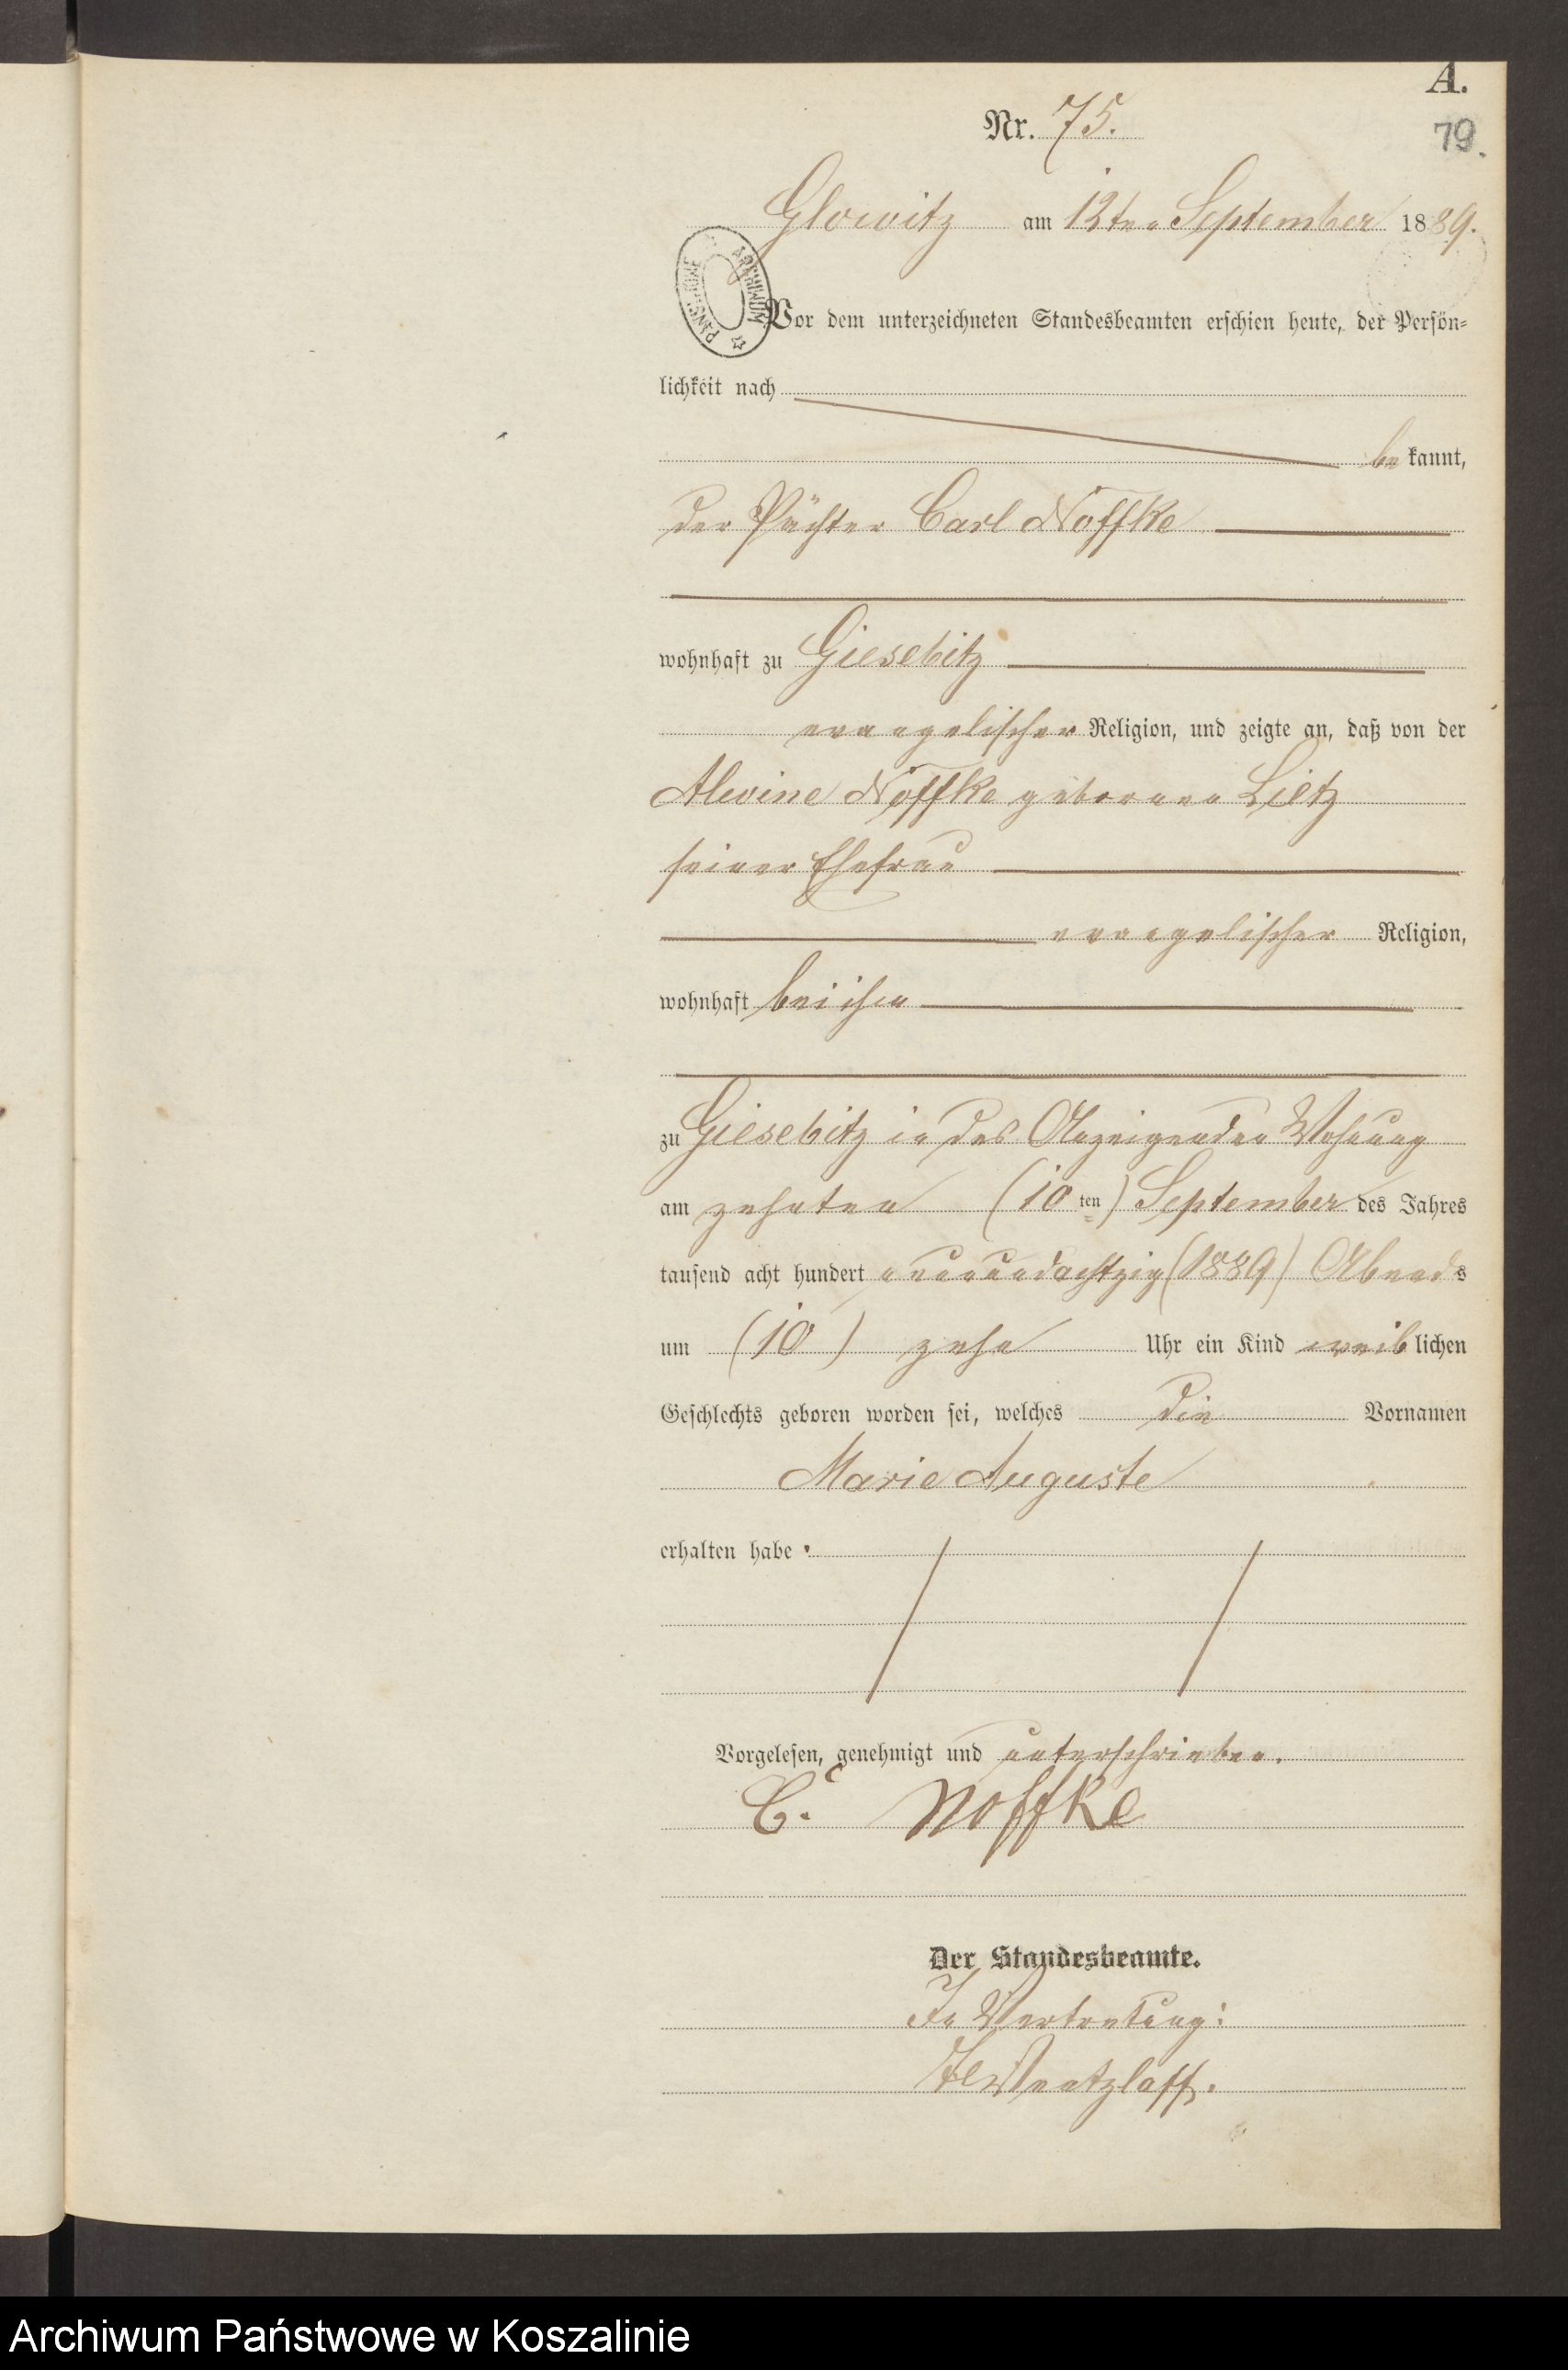 A.
Nr. 75.
79.
Glowitz am 12ten September 1889.
Vor dem unterzeichneten Standesbeamten erschien heute, der Persön-
lichkeit nach
be kannt,
der Pächter Carl Noffke
wohnhaft zu Giesebitz
evangelischer Religion, und zeigte an, daß von der
Alwine Noffke geborenen Lietz
seiner Ehefrau
evangelischer Religion,
wohnhaft bei ihm
zu Giesebitz in des Anzeigenden Wohnung
am zehnten (10 ten) September des Jahres
tausend acht hundert neunundachtzig (1889) Abends
um (10) zehn Uhr ein Kind weiblichen
Geschlechts geboren worden sei, welches die Vornamen
Marie Auguste
erhalten habe
Vorgelesen, genehmigt und unterschrieben.
C. Noffke
Der Standesbeamte.
In Vertretung:
Wentzlaff.
Archiwum Państwowe w Koszalinie